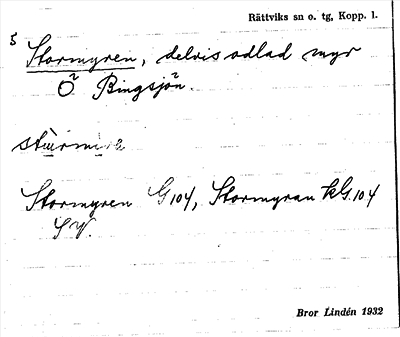 Rättviks sn o. tg, Kopp. l.
5 Stormyren, delvis odlad myr
Ö Bingsjön.
Stormyren G104, Stormyran kG.104
Bror Lindén 1932